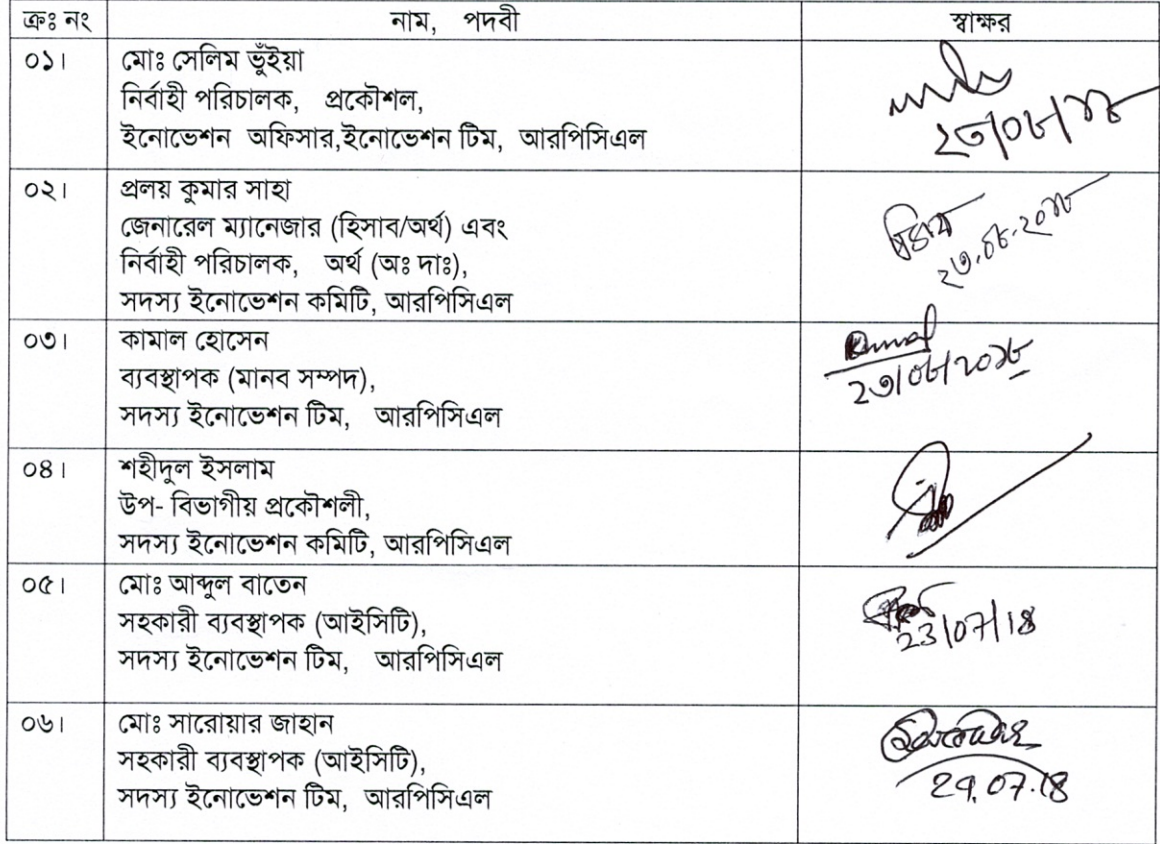 ক্রঃ নং নাম, পদবী স্বাক্ষর
০১। মোঃ সেলিম ভুঁইয়া
নির্বাহী পরিচালক, প্রকৌশল,
ইনোভেশন অফিসার,ইনোভেশন টিম, আরপিসিএল
০২। প্রলয় কুমার সাহা
জেনারেল ম্যানেজার (হিসাব/অর্থ) এবং
নির্বাহী পরিচালক, অর্থ (অঃ দাঃ),
সদস্য ইনোভেশন কমিটি, আরপিসিএল
০৩। কামাল হোসেন
ব্যবস্থাপক (মানব সম্পদ),
সদস্য ইনোভেশন টিম, আরপিসিএল
০৪। শহীদুল ইসলাম
উপ- বিভাগীয় প্রকৌশলী,
সদস্য ইনোভেশন কমিটি, আরপিসিএল
০৫। মোঃ আব্দুল বাতেন
সহকারী ব্যবস্থাপক (আইসিটি),
23/07/18
সদস্য ইনোভেশন টিম, আরপিসিএল
০৬। মোঃ সারোয়ার জাহান
সহকারী ব্যবস্থাপক (আইসিটি),
সদস্য ইনোভেশন টিম, আরপিসিএল